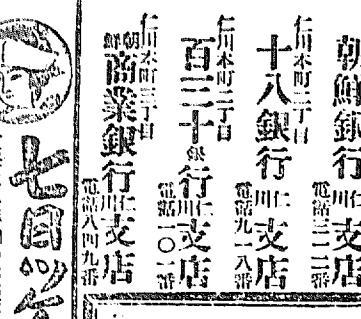 朝鮮銀行仁川支店
電話三一二番
仁川本町二丁目
十八銀行仁川支店
電話九一八番
仁川本町二丁目
百三十銀行仁川支店
電話一〇一番
仁川本町三丁目
朝鮮商業銀行仁川支店
電話八四九番
七月